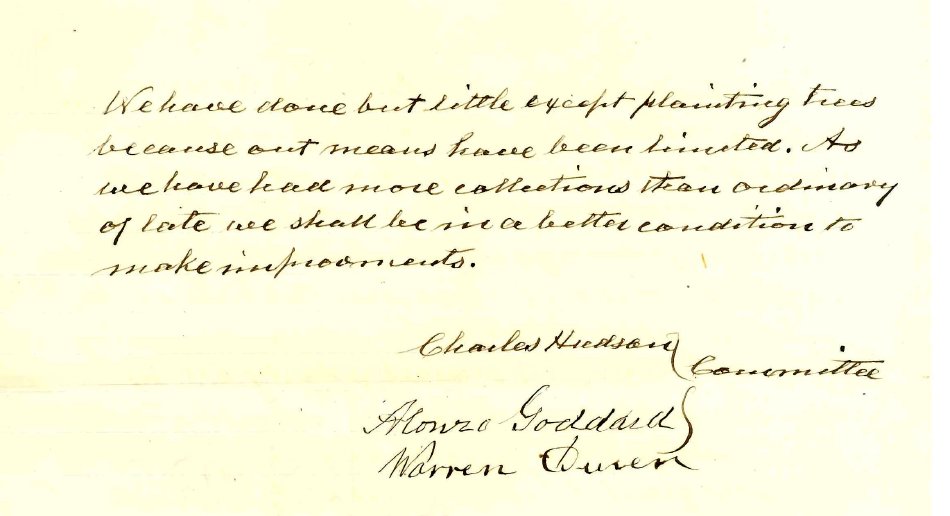 We have done but little except plainting trees
because out means have been limited. As
we have had more collections than ordinary
of late we shall be in a better condition to
make improvments.
Charles Hudson
Committee
Alonzo Goddard
Warren Duren